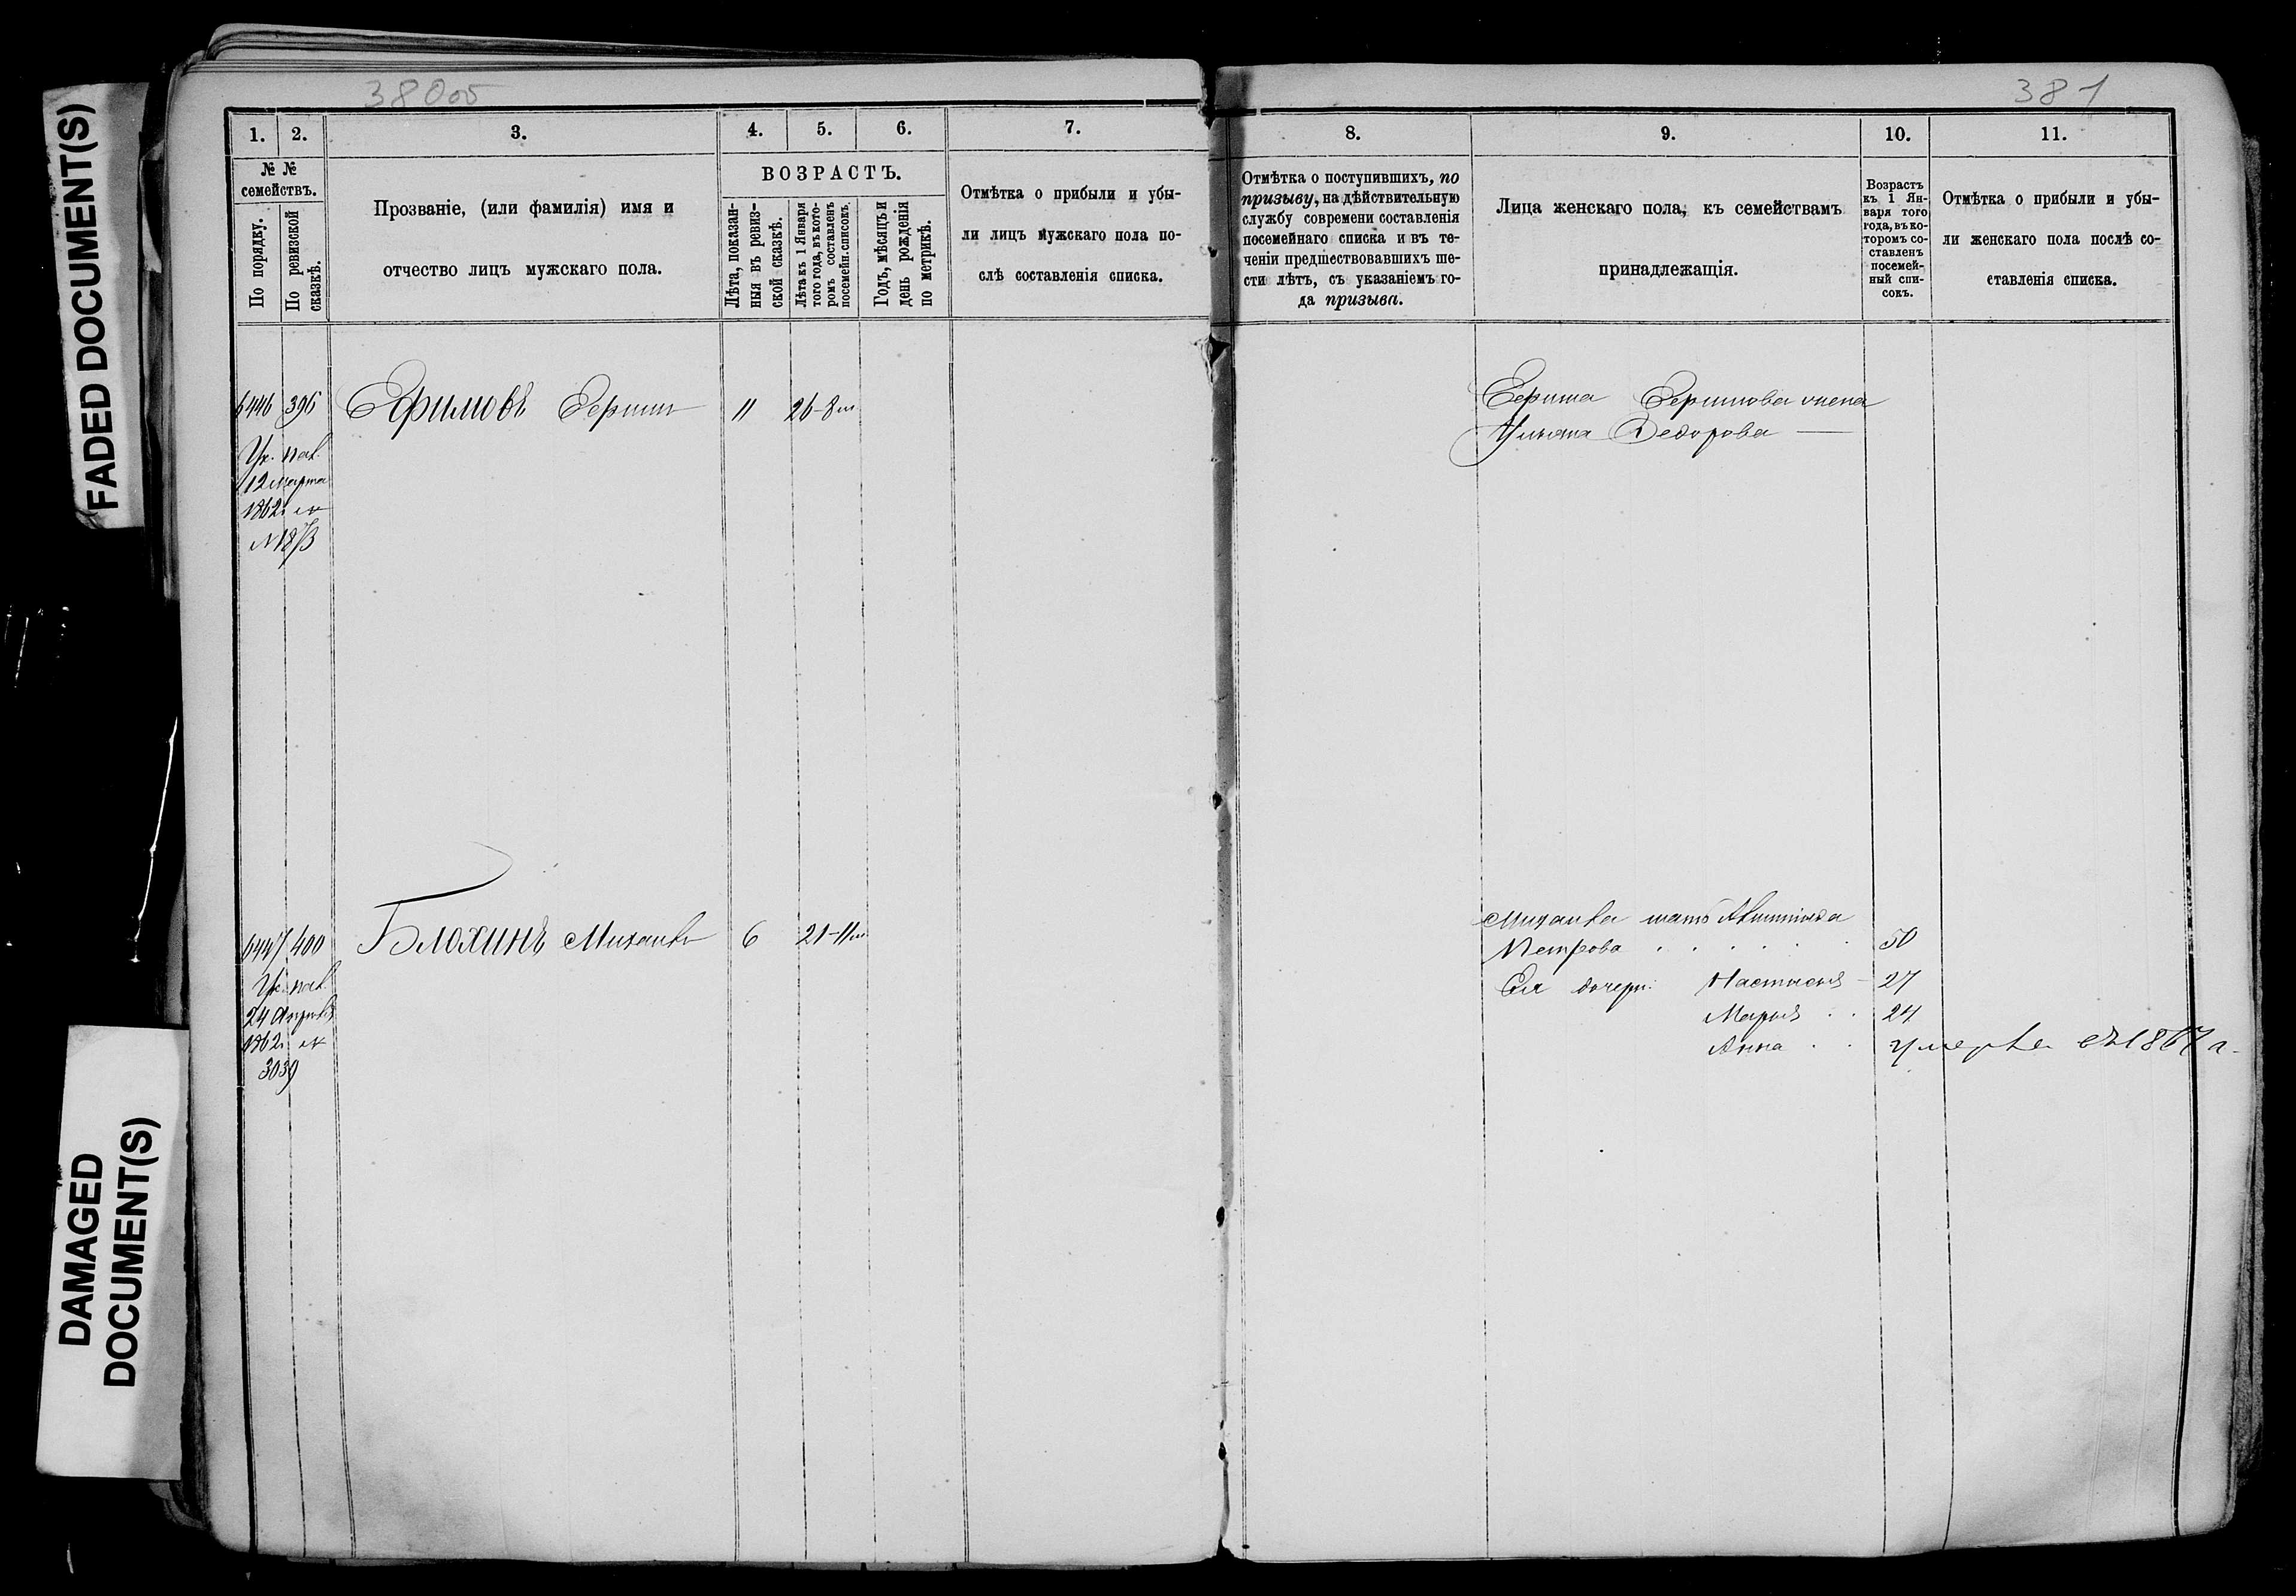 FADED DOCUMENT(S)
DAMAGED
DOCUMENT(S)
380об
1.
2.
3.
4.
5.
6.
7.
№ №
семействъ.
По порядку.
По ревизской
сказкѣ.
Прозваніе, (или фамилія) имя и
отчество лицъ мужскаго пола.
ВОЗРАСТЪ.
Лѣта, показан-
ныя въ ревиз-
ской сказкѣ.
Лѣта къ 1 Января
того года, въ кото-
ромъ составленъ
посемейн. списокъ.
Годъ, мѣсяцъ и
день рожденія
по метрикѣ.
Отмѣтка о прибыли и убы-
ли лицъ мужскаго пола по-
слѣ составленія списка.
6446 396 Ефимовъ 11 26-8м
Ук. пал.
12 марта
1862г №
6447 400 Блохинъ Михаилъ 6 21-11м
Ук. пал.
24 Апрѣля
1862г №
3039
381
8.
9.
10.
11.
Отмѣтка о поступившихъ, по
призыву, на дѣйствительную
службу современи составленія
посемейнаго списка и въ те-
ченіи предшествовавшихъ ше-
сти лѣтъ, съ указаніемъ го-
да призыва.
Лица женскаго пола, къ семействамъ
принадлежащія.
Возрастъ
къ 1 Ян-
варя того
года, въ ко-
торомъ со-
ставленъ
посемей-
ный спи-
сокъ.
Отмѣтка о прибыли и убы-
ли женскаго пола послѣ со-
ставленія списка.
жена
Ульяна Федорова —
Михаила мать
Петрова . . . . . . 50
Ея дочери: Настасья — 27
Марья . . 24
Анна . . умерла въ 1867 г.